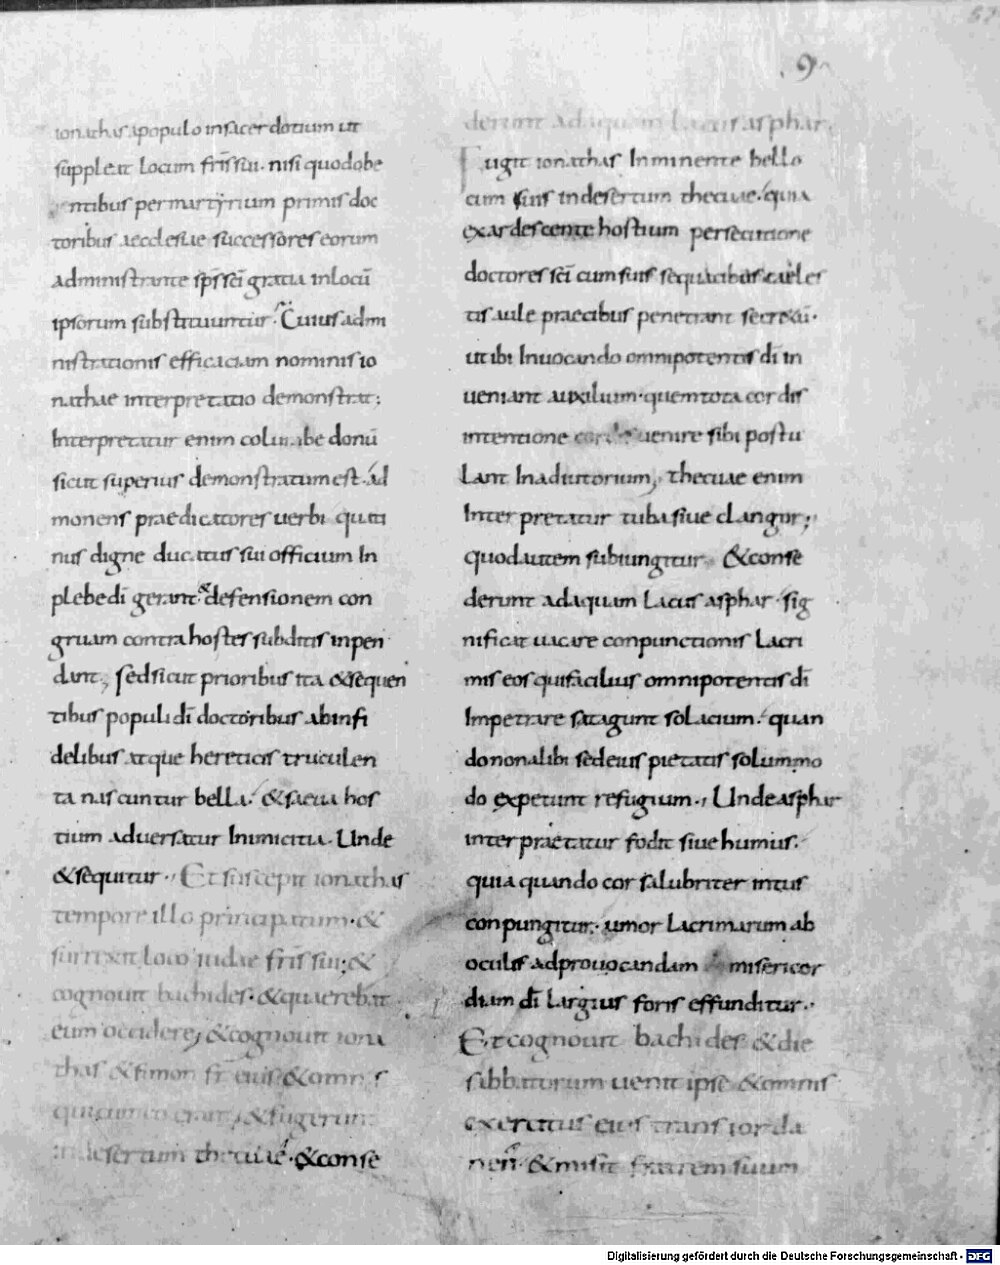 57
9
ionathas apopulo insacerdotium ut
suppleat locum fr̄is sui. nisi quodobe
untibus permartyrium primis doc
toribus aecclesiae successores eorum
administrante sp̄s sc̄i gratia inlocū
ipsorum substituuntur. Cuius admi
nistrationis efficaciam nominis io
nathae interpretatio demonstrat;
Interpretatur enim columbe donū
sicut superius demonstratum est. ad
monens praedicatores uerbi quati
nus digne ducatus sui officium In
plebe di gerant. & defensionem con
gruam contra hostes subditis inpen
dant; sed sicut prioribus ita & sequen
tibus populi dī doctoribus abinfi
delibus atque hereticis truculen
ta nascuntur bella. & saeua hos
tium aduersatur Inimicitia. Unde
& sequitur. Et suscepit ionathas
tempore illo principatum. &
surrexit loco iudae fr̄is sui; &
cognouit bachides. & quaerebat
eum occidere; & cognouit iona
thas & simon fr̄ eius & omnes
qui cum eo erant; & fugerunt
in desertum thecuae. & conse
derunt ad aquam lacus asphar.
Fugit ionathas Inminente bello
cum suis indesertum thecuae. quia
exardescente hostium persecutione
doctores sc̄i cum suis sequacibus caeles
tis aule praecibus penetrant secreta.
ut ibi Inuocando omnipotentis dī in
ueniant auxilium. quem tota cordis
intentione uenire sibi postu
lant Inadiutorium; thecuae enim
Interpretatur tuba siue clangor;
quod autem subiungitur & conse
derunt ad aquam lacus asphar. sig
nificat uacare conpunctionis lacri
mis eos qui facilius omnipotentis dī
Impetrare satagunt solacium. quan
do non alibi sed eius pietatis solummo
do expetunt refugium., Unde asphar
interpraetatur fodit siue humus.
quia quando cor salubriter intus
conpungitur. umor lacrimarum ab
oculis adprouocandam misericor
diam dī largius foris effunditur..
Et cognouit bachides & die
sabbatorum uenit ipse & omnis
exercitus eius trans iorda
nen. & misit fratrem suum
Digitalisierung gefördert durch die Deutsche Forschungsgemeinschaft - DFG